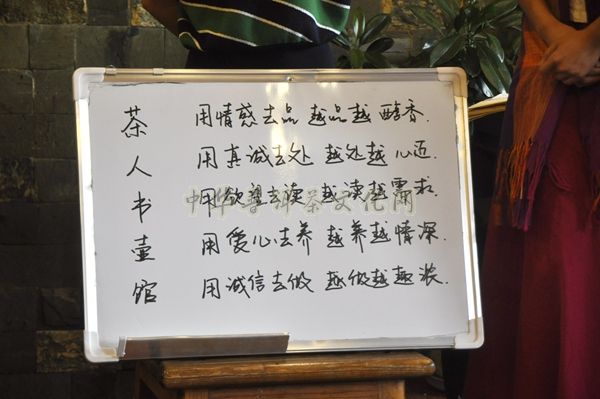 茶 用情感去品 越品越醇香.
人 用真诚去处 越处越心近.
书 用欲望去读 越读越需求.
壶 用爱心去养 越养越情深.
馆 用诚信去做 越做越趣装.
中华普洱茶文化网